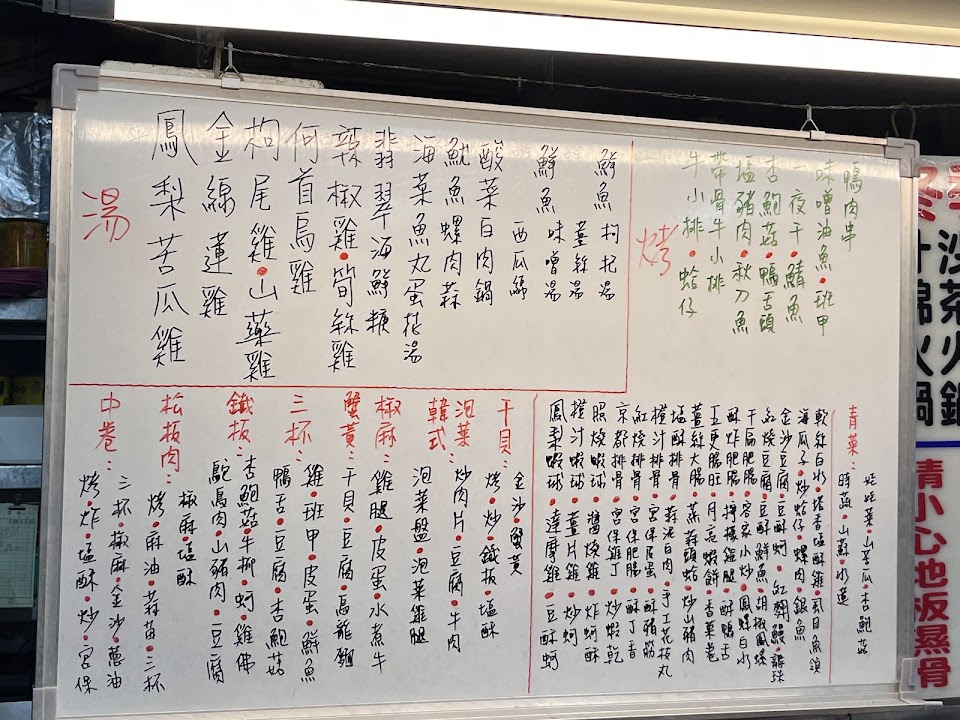 鴨肉串
味噌油魚•班甲
一夜干鯖魚
杏鮑菇•鴨舌頭
塩豬肉•秋刀魚
帶骨牛小排
牛小排•蛤仔
烤
鮮魚枸杞湯
薑絲湯
鮮魚味噌湯
西瓜綿
酸菜白肉鍋
魷魚螺肉蒜
海菜魚丸蛋花湯
翡翠海鮮羹
辣椒雞•筍絲雞
何首烏雞
枸尾雞•山藥雞
金線蓮雞
鳳梨苦瓜雞
湯
青菜：
娃娃菜•山苦瓜•杏鮑菇
時蔬•山蘇•水蓮
軟絲白水•塔香塩酥雞•虱目魚頭
海瓜子•炒蛤仔•螺肉•銀魚
金沙豆腐•豆酥蚵•紅糟鰻•龍珠
紅燒豆腐•豆酥鮮魚•胡椒鳳螺
干扁肥腸•客家小炒•鳳螺白水
酥炸肥腸•檸檬雞腿•酥鴨舌
五更腸旺•月亮蝦餅•香菓卷
薑絲大腸•蒸蒜頭蛤•炒山豬肉
塩酥排骨•蒜泥白肉•手工花枝丸
橙汁排骨•宮保皮蛋•酥豬筋
紅燒排骨•宮保肥腸•酥丁香
京都排骨•宮保雞丁•炒蝦乾
照燒蝦球•醬燒雞•炸蚵酥
橙汁蝦球•薑片雞•炒蚵
鳳梨蝦球•達摩雞•豆酥蚵
干貝：
金沙•蟹黃
烤•炒•鐵板•塩酥
泡菜
韓式：
炒肉片•豆腐•牛肉
泡菜盤•泡菜雞腿
椒麻：雞腿•皮蛋•水煮牛
蟹黃：干貝•豆腐•烏龍麵
三杯：
雞•班甲•皮蛋•鮮魚
鴨舌•豆腐•杏鮑菇
鐵板：
杏鮑菇•牛柳•蚵•雞佛
鴕鳥肉•山豬肉•豆腐
松板肉：
椒麻•塩酥
烤•麻油•蒜苗•三杯
中卷：
三杯•椒麻•金沙•蔥油
烤•炸•塩酥•炒•宮保
火鍋
清小心地板
蒸骨